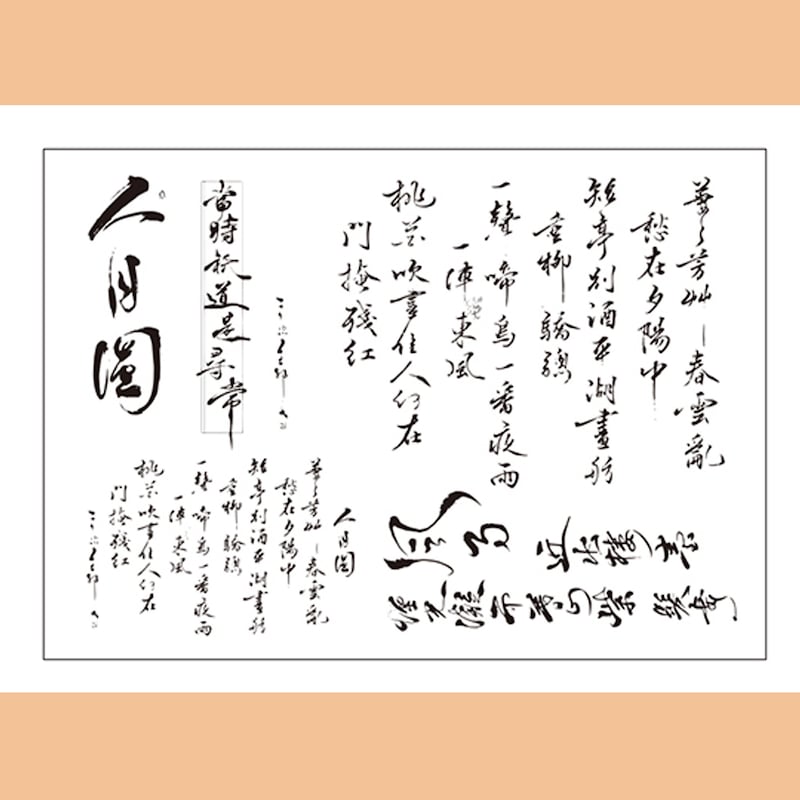 萋々芳艸春雲亂
愁在夕陽中
短亭別酒平湖畫舫
垂柳驕驄
一聲啼鳥一番夜雨
一陣東風
桃花吹盡佳人何在
門掩殘紅
當時祇道是尋常
人月圓
人月圓
萋々芳艸春雲亂
愁在夕陽中
短亭別酒平湖畫舫
垂柳驕驄
一聲啼鳥一番夜雨
一陣東風
桃花吹盡佳人何在
門掩殘紅